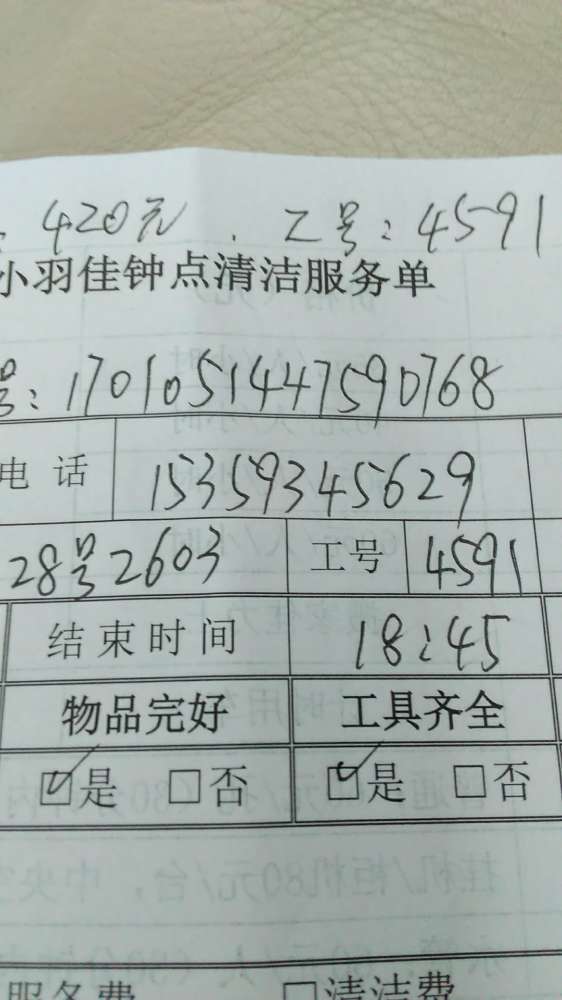 420元. 工号:4591
小羽佳钟点清洁服务单
号:1701051447590768
电话 15359345629
28号2603 工号 4591
结束时间 18:45
物品完好 工具齐全
☑是 □否 ☑是 □否
服务费 □清洁费